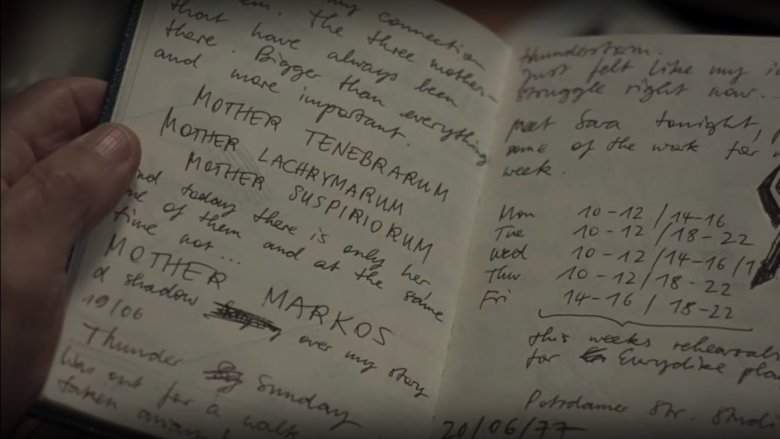 my connection
The three mother-
that have always been
there. Bigger than everything
and more important.
MOTHER TENEBRARUM
MOTHER LACHRYMARUM
MOTHER SUSPIRIORUM
and today there is only her,
one of them and at the same
time not...
MOTHER MARKOS
a shadow over my story
19/06
Thunder Sunday
Was out for a walk
taken away
thunderstorm.
just felt like my
struggle right now...
meet Sara tonight,
some of the work for
week.
Mon 10-12 / 14-16
Tue 10-12 / 18-22
Wed 10-12 / 14-16 /
Thur 10-12 / 18-22
Fri 14-16 / 18-22
this weeks rehearsal
for Eurydike
Potsdamer Str.
20/06/77